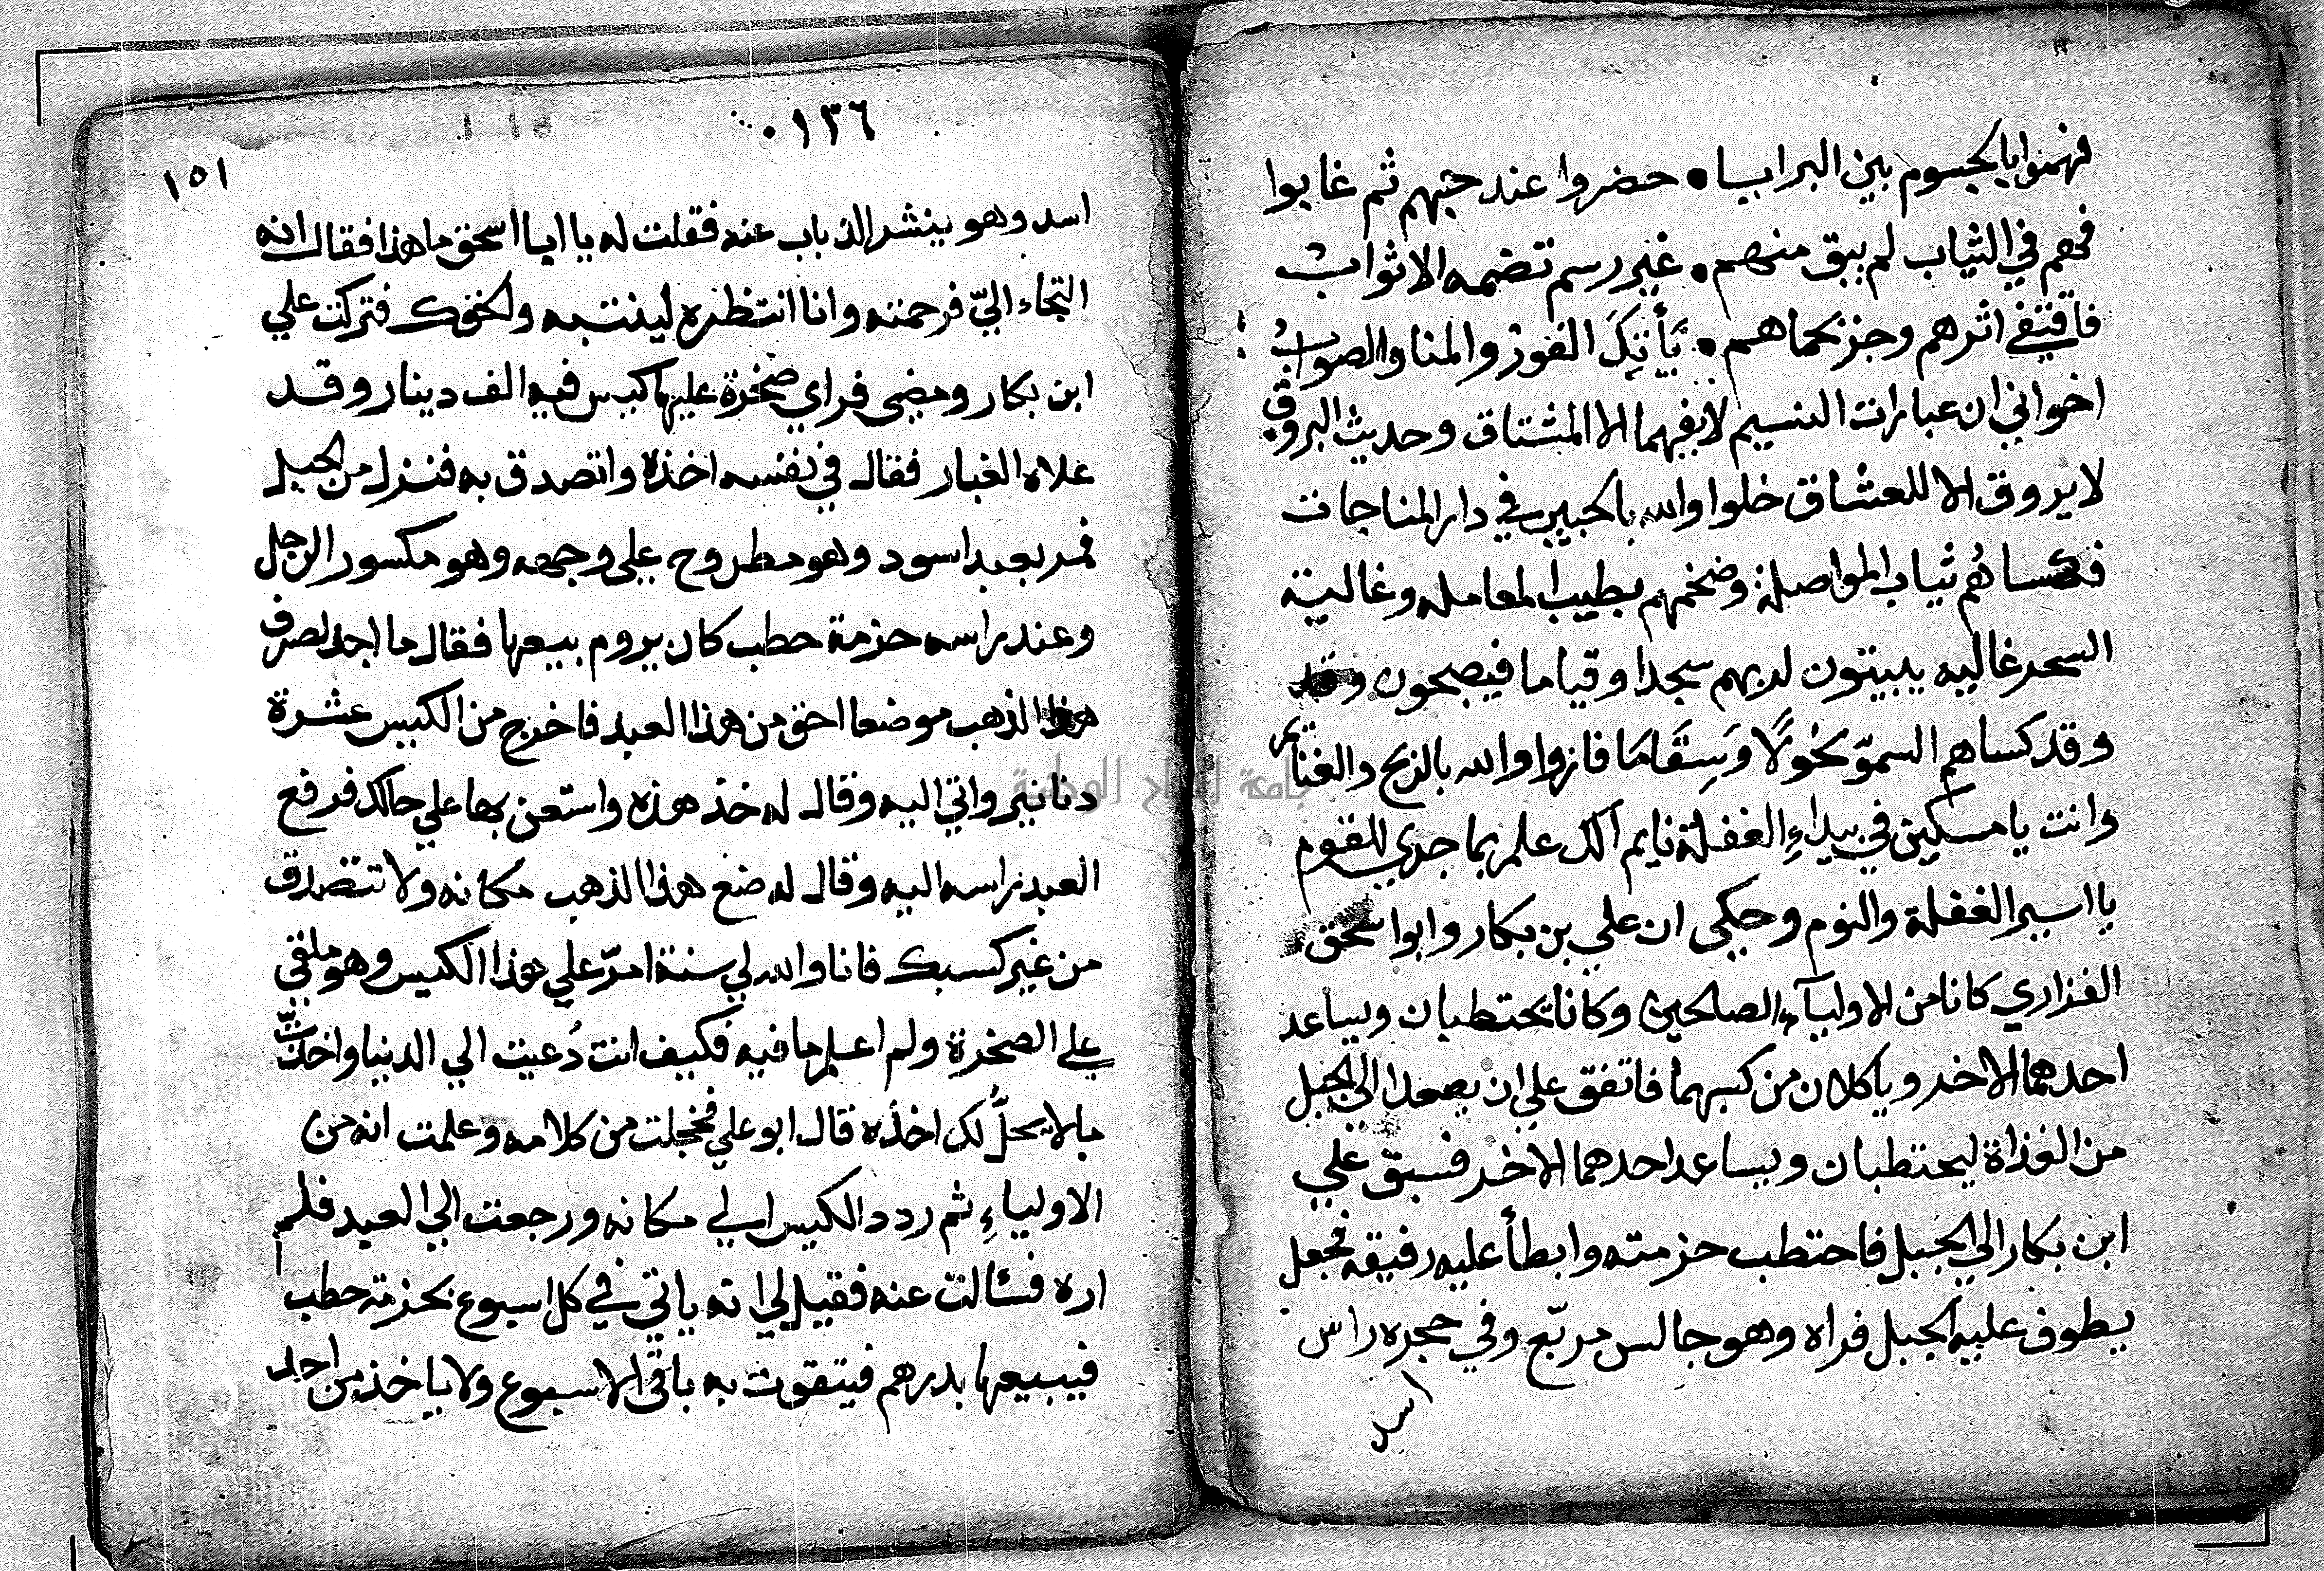 فهموا بالجسوم بين البرايا • حضروا عند حبهم ثم غابوا
فهم في الثياب لم يبق منهم • غير رسم تضمه الاثواب
فاقتفي اثرهم وجز بحماهم • يَأتِكَ الفوز والمنا والصوابُ
اخواني ان عبارات النسيم لا يفهمها الا المشتاق وحديث البروق
لا يروق الا للعشاق خلوا والله بالحبيب في دار المناجات
فكساهُم ثياب المواصلة وضخمهم بطيب المعامله وغالية
السحر غاليه يبيتون لربهم سجدا وقياما فيصبحون وقد
وقد كساهم السموّ نحُولًا وَسِقَامَا فازوا والله بالربح والغنائم
وانت يا مسكين في بيداءِ الغفلة نايم الك علم بما جري للقوم
يا اسير الغفلة والنوم وحكي ان علي بن بكار وابواسحق
الفزاري كانا من الاوليآء الصالحين وكانا يحتطبان ويساعد
احدهما الاخر وياكلان من كسبهما فاتفق علي ان يصعدا الي الجبل
من الغذاة ليحتطبان ويساعد احدهما الاخر فسبق علي
ابن بكار الي الجبل فاحتطب حزمته وابطأ عليه رفيقه فجعل
يطوف عليه الجبل فراه وهو جالس مربّع وفي حجره راس
اسد
١٣٦
١٥١
اسد وهو ينش الذباب عنه فقلت له يا ابا اسحق ما هذا فقال انه
التجاء اليّ فرحمته وانا انتظره لينتبه والحقك فتركت علي
ابن بكار ومضى فراي صخرة عليها كبس فيه الف دينار وقد
علاه الغبار فقال في نفسه اخذه واتصدق به فنزل من الجبل
فمر بعبد اسود وهو مطروح علي وجهه وهو مكسور الرجل
وعند راسه حزمة حطب كان يروم بيعها فقال ما اجد لصرف
هذا الذهب موضعا احق من هذا العبد فاخرج من الكيس عشرة
دنانير واتي اليه وقال له خذ هذه واستعن بها علي حالك فرفع
العبد راسه اليه وقال له ضع هذا الذهب مكانه ولا تتصدق
من غير كسبك فانا والله لي سنة امرّ علي هذا الكيس وهو ملقي
علي الصخرة ولم اعلم ما فيه فكيف انت دُعيت الي الدنيا واخذت
ما لا يحلُّ لك اخذه قال ابو علي فخجلت من كلامه وعلمت انه من
الاولياءِ ثم رددت الكيس الي مكانه ورجعت الي العبد فلم
اره فسالت عنه فقيل لي انه ياتي في كل اسبوع بحزمة حطب
فيبيعها بدرهم فيتقوت به باقي الاسبوع ولا ياخذ من احد